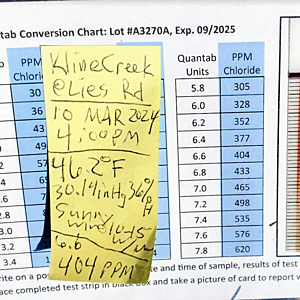 ntab Conversion Chart: Lot #A3270A, Exp. 09/2025
PPM Chloride
Quantab Units PPM Chloride
30
36
43
49
57
2.8
3.
3.4
5.8 305
6.0 328
6.2 352
6.4 377
6.6 404
6.8 433
7.0 465
7.2 498
7.4 535
7.6 576
7.8 620
Kline Creek
@ Lies Rd
10 MAR 2024
4:00 PM
46.2°F
30.14 in Hg 36%
Sunny
6.6
404 PPM
rite on a po
e and time of sample, results of test
ace completed test strip in black box and take a picture of card to report w